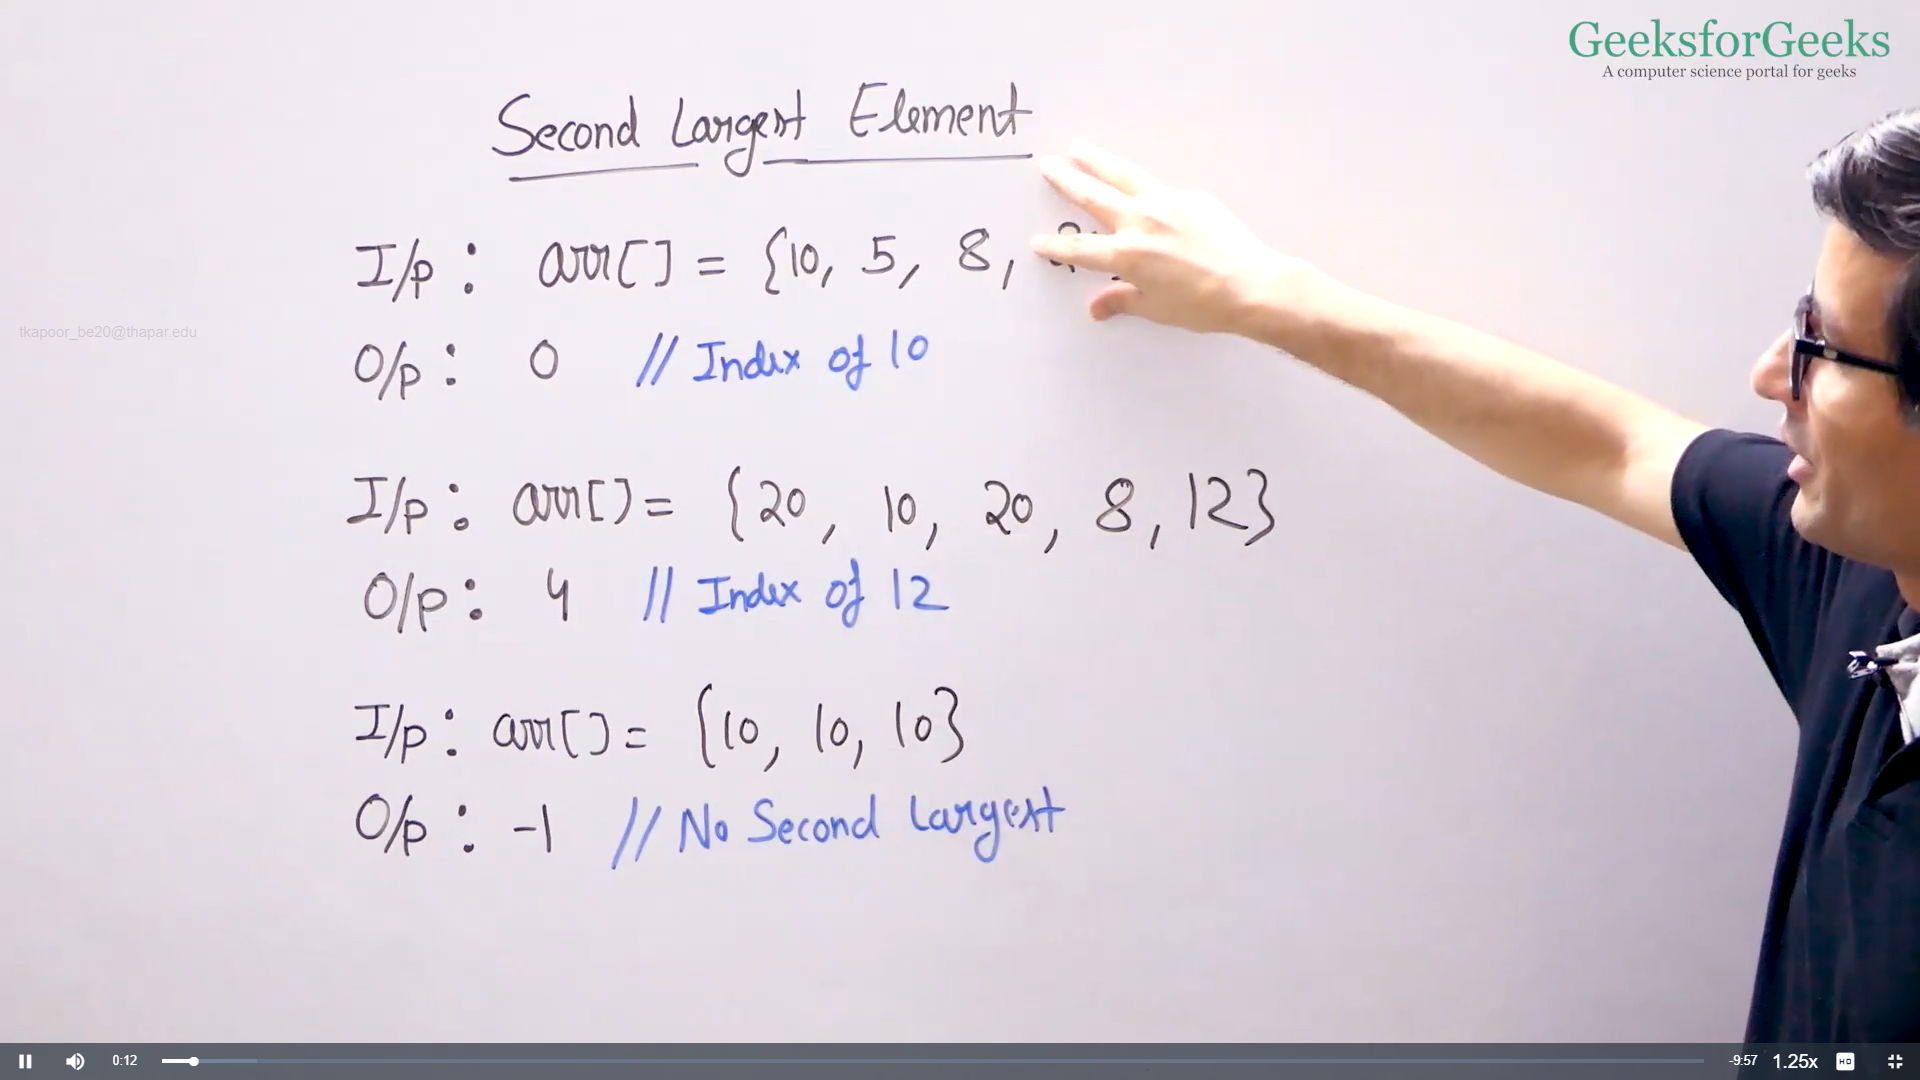 GeeksforGeeks
A computer science portal for geeks
Second Largest Element
I/p : arr[] = {10, 5, 8,
tkapoor_be20@thapar.edu
O/p : 0 // Index of 10
I/p : arr[] = {20, 10, 20, 8, 12}
O/p : 4 // Index of 12
I/p : arr[] = {10, 10, 10}
O/p : -1 // No Second Largest
0:12
-9:57
1.25x
HD